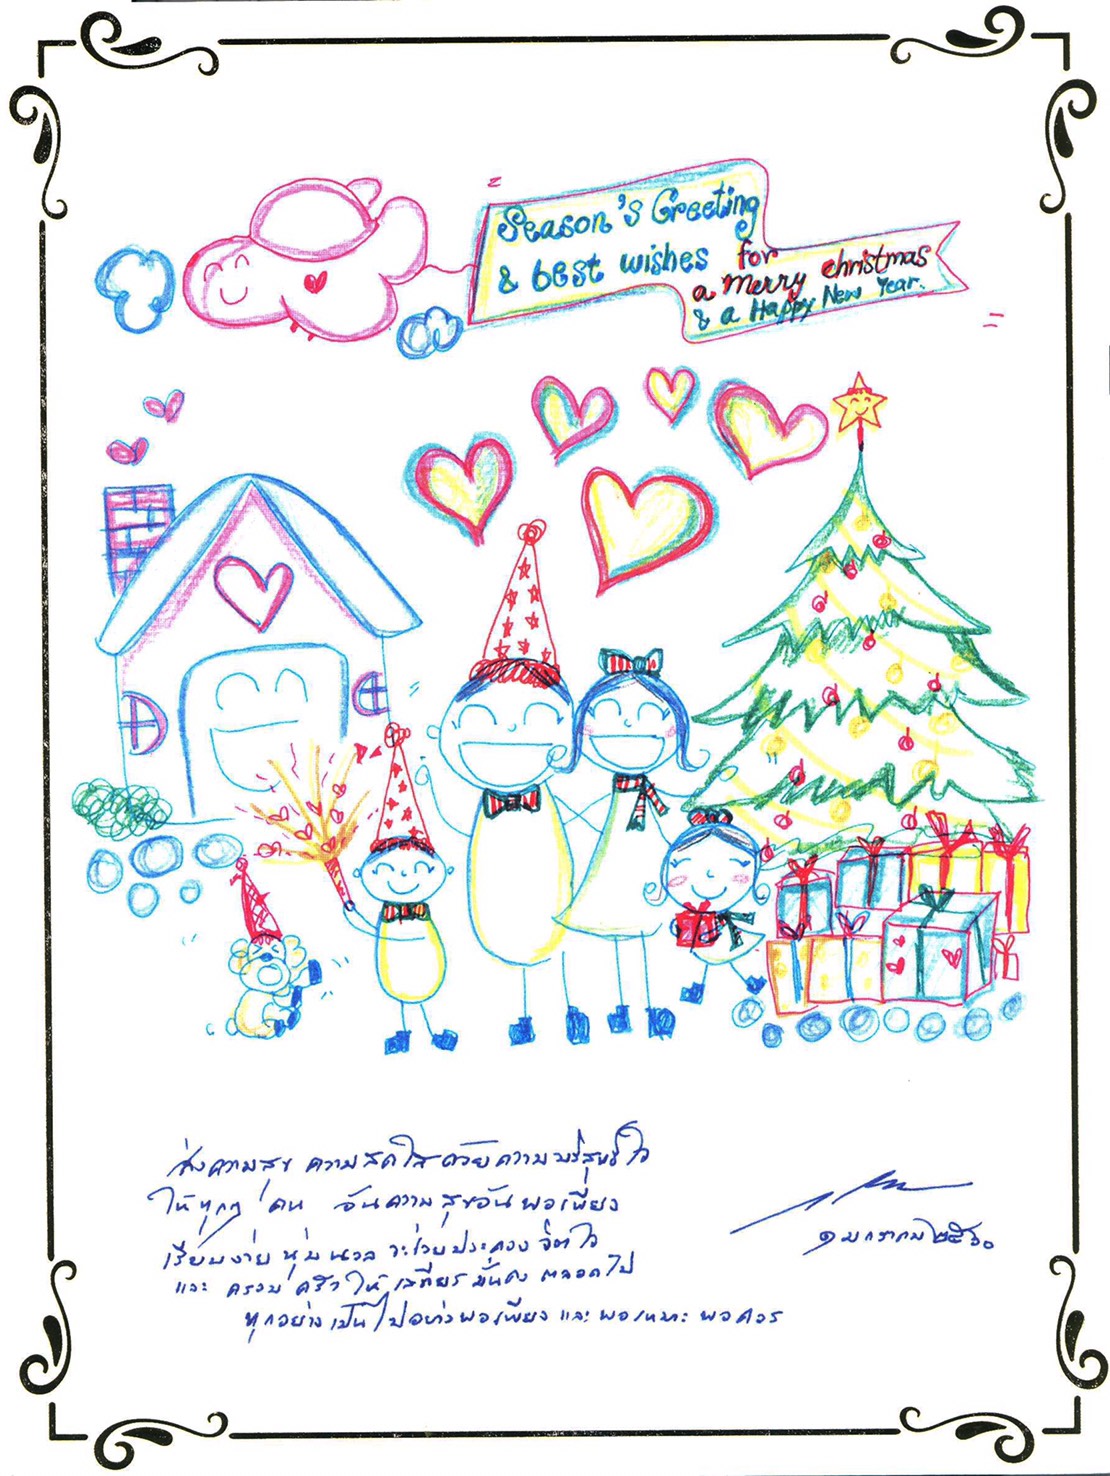 Season's Greeting
& best wishes for
a merry christmas
& a Happy New Year.
ส่งความสุข ความสดใส ด้วยความบริสุทธิ์ใจ
ให้ทุกๆ คน อันความสุขอันพอเพียง
เรียบง่าย นุ่มนวล จะช่วยประคองจิตใจ
และ ครอบครัวให้เสถียร มั่นคง ตลอดไป
ทุกอย่างเป็นไปอย่างพอเพียง และ พอเหมาะ พอควร
๑ มกราคม ๒๕๖๐